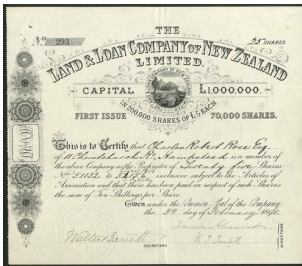 THE
No. 293
25 SHARES
LAND & LOAN COMPANY OF NEW ZEALAND
LIMITED.
CAPITAL £1,000,000.
IN 200,000 SHARES OF £5 EACH
FIRST ISSUE 70,000 SHARES.
This is to Certify that Charles Robert Rowe Esq.
of Hampstead is a member of
the above Company as the Proprietor of Twenty five Shares
No. 51132 to inclusive subject to the Articles of
Association and that there has been paid in respect of such Shares
the sum of Ten Shillings per Share.
Given under the Common Seal of the Company
the day of February
Walter Barrett
SECRETARY